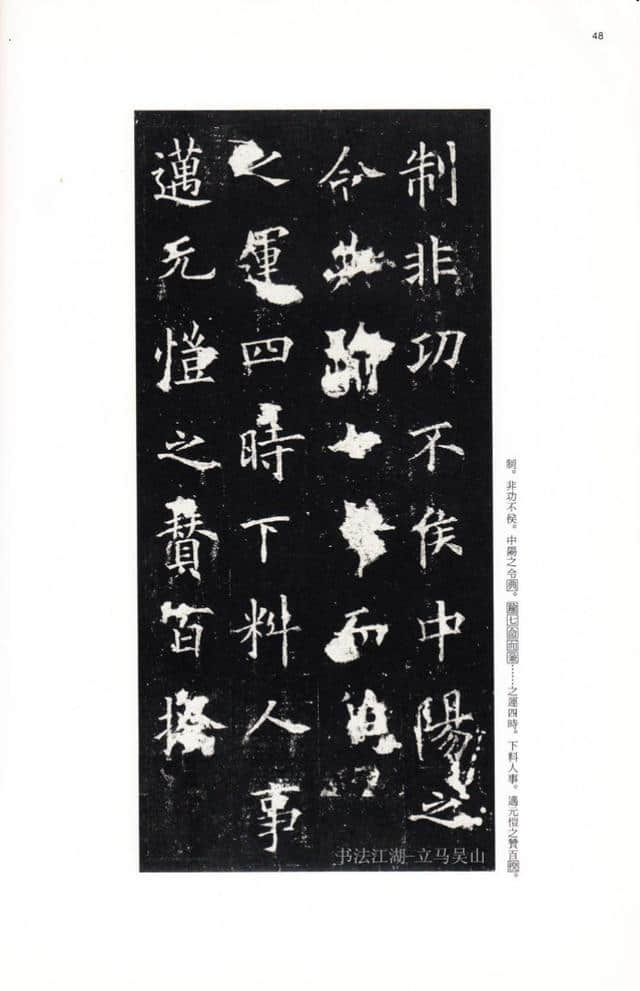 48
制非功不侯中陽之
令典踰七
之運四時下料人事
邁元愷之贊百揆
制。非功不侯。中陽之令典。踰七命而……之運四時。下料人事。邁元愷之贊百揆。
书法江湖–立马吴山